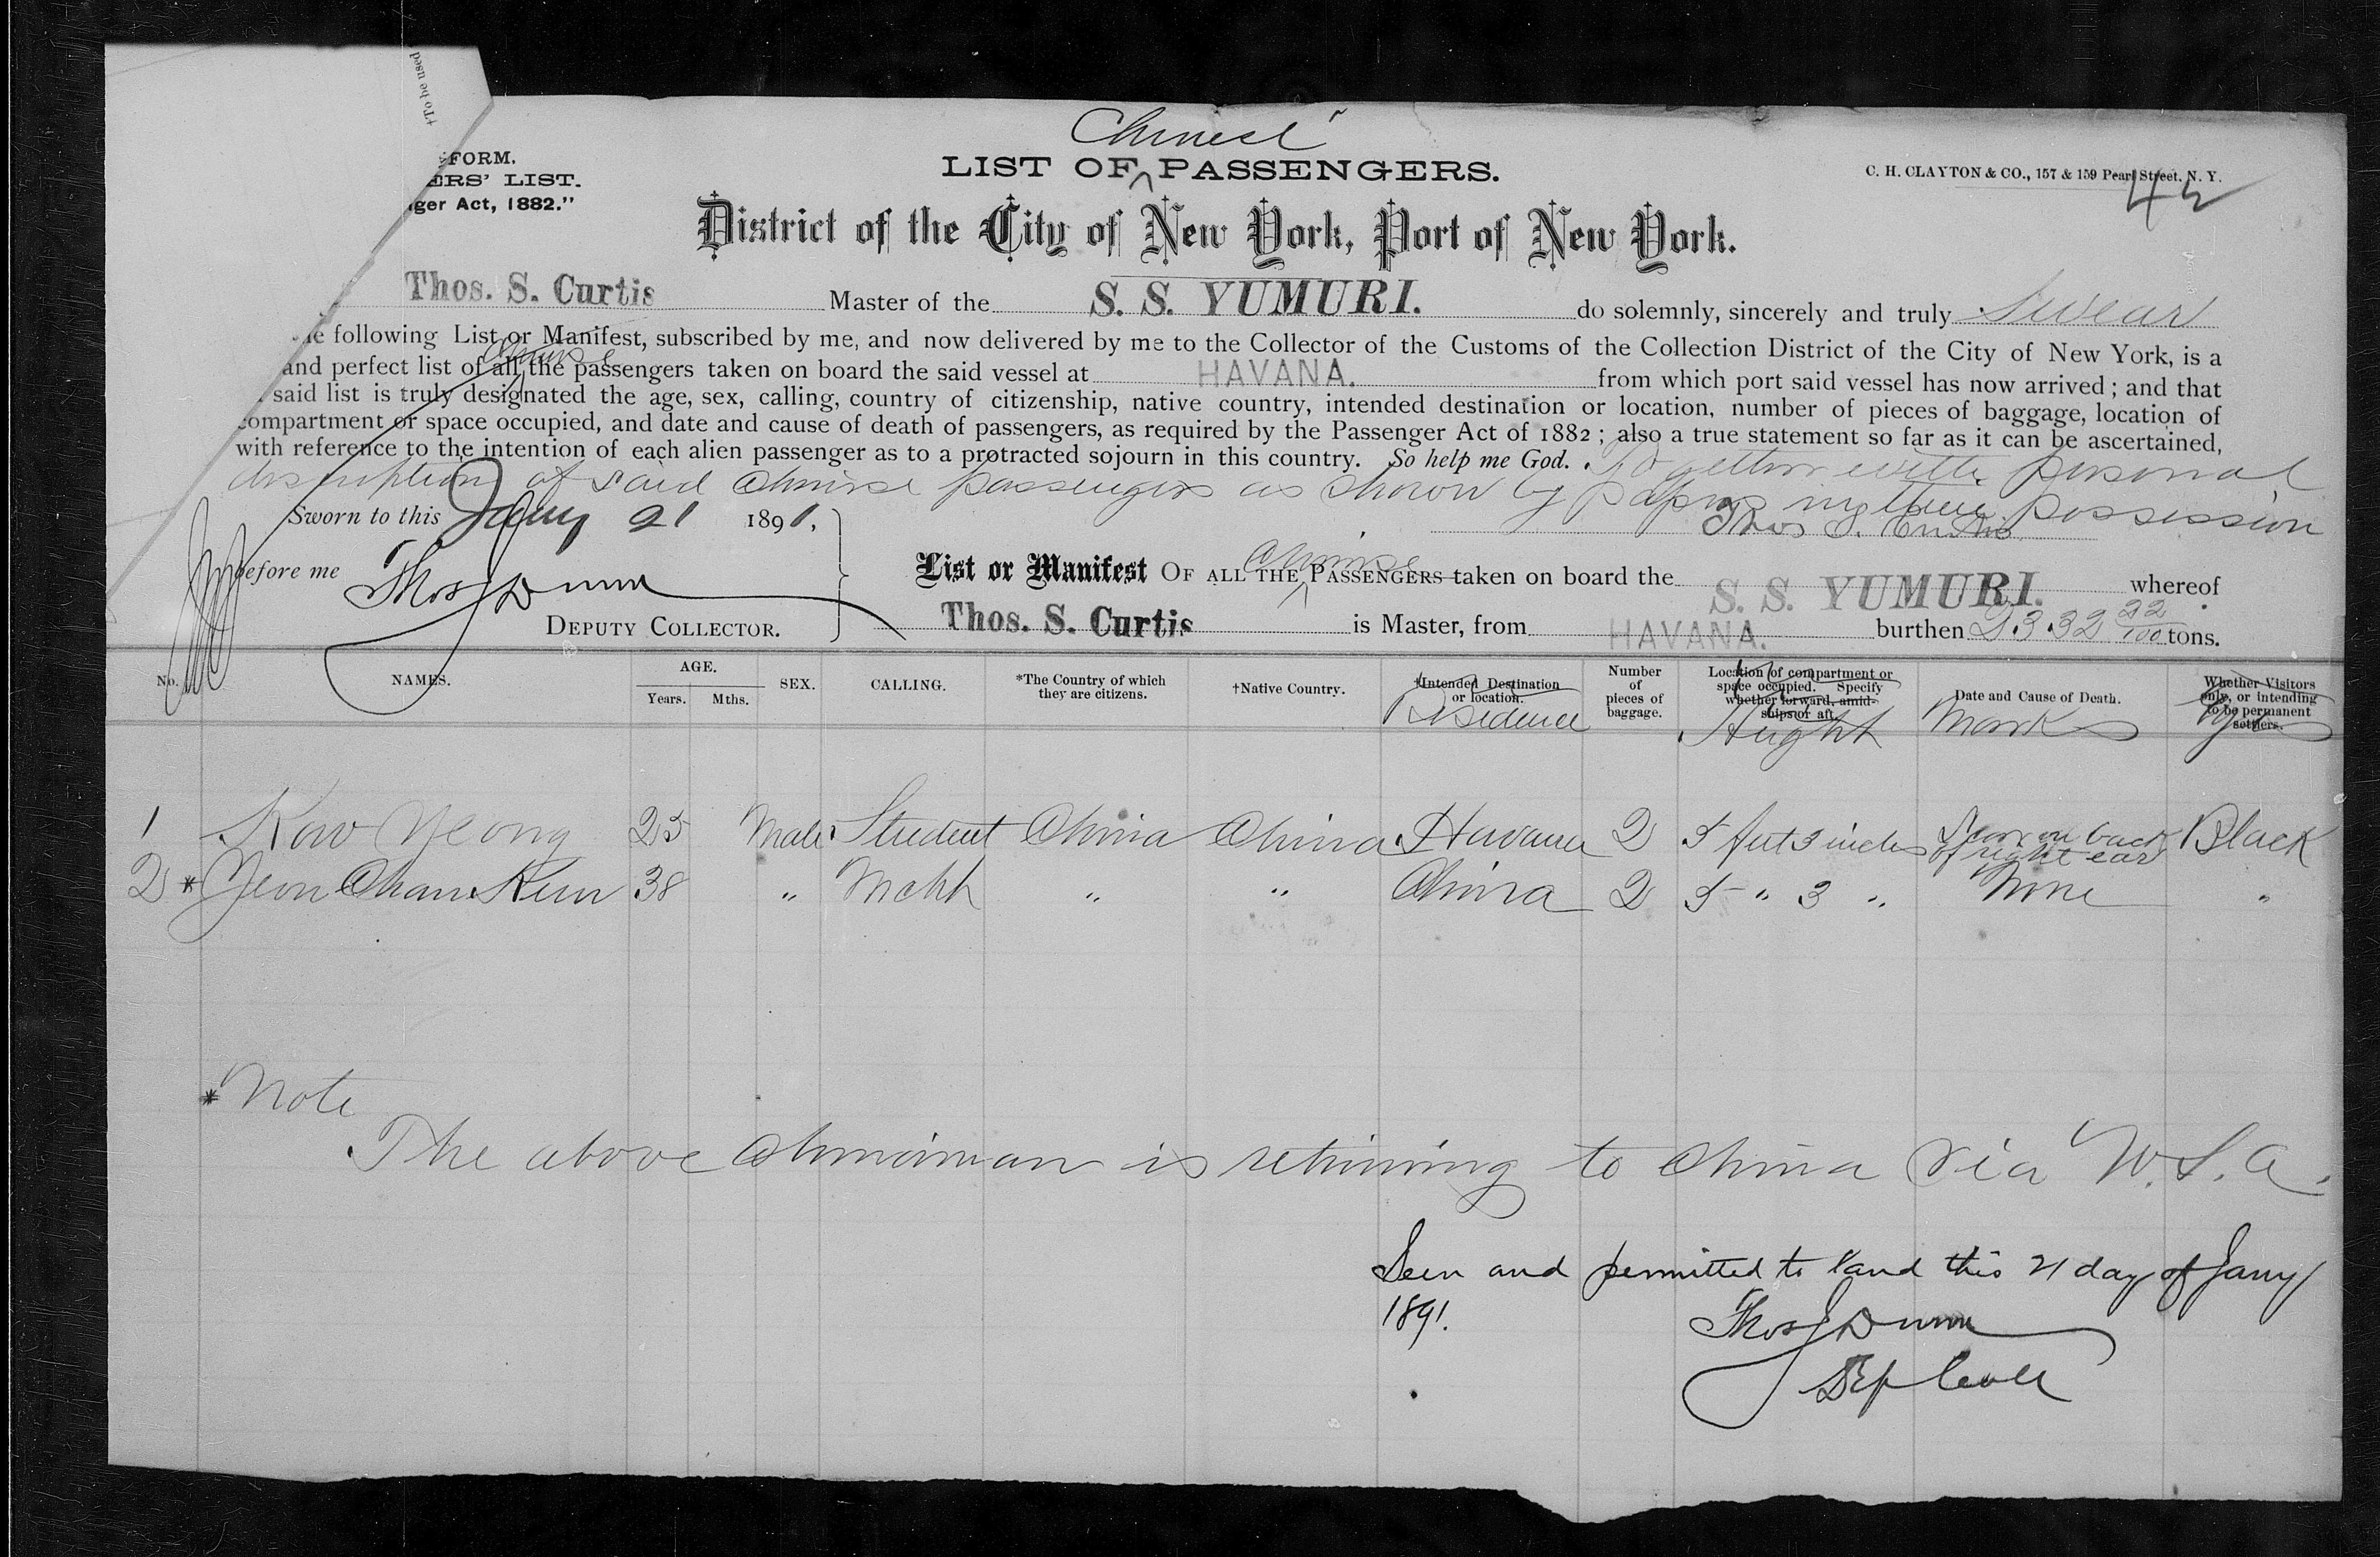 †To be used
FORM.
ERS' LIST.
ger Act, 1882."
Chinese
LIST OF ^ PASSENGERS.
C. H. CLAYTON & CO., 157 & 159 Pearl Street, N. Y.
42
District of the City of New York, Port of New York.
Thos. S. Curtis Master of the S. S. YUMURI. do solemnly, sincerely and truly Swear
following List or Manifest, subscribed by me, and now delivered by me to the Collector of the Customs of the Collection District of the City of New York, is a
Chinese
and perfect list of all the passengers taken on board the said vessel at HAVANA. from which port said vessel has now arrived; and that
said list is truly designated the age, sex, calling, country of citizenship, native country, intended destination or location, number of pieces of baggage, location of
compartment or space occupied, and date and cause of death of passengers, as required by the Passenger Act of 1882; also a true statement so far as it can be ascertained,
with reference to the intention of each alien passenger as to a protracted sojourn in this country. So help me God. Together with personal
description of said Chinese passengers as shown by papers in their possession
Sworn to this Jany 21 1891.
Thos S. Curtis
before me Thos J Dunn
DEPUTY COLLECTOR.
Chinese
List or Manifest OF ALL THE ^ PASSENGERS taken on board the S. S. YUMURI. whereof
Thos. S. Curtis is Master, from HAVANA. burthen 2332 22/100 tons.
No. NAMES. AGE. Years. Mths. SEX. CALLING. *The Country of which they are citizens. †Native Country. †Intended Destination or location. Residence Number of pieces of baggage. Location of compartment or space occupied. Specify whether forward, amidships or aft. Height Date and Cause of Death. Marks Whether Visitors only, or intending to be permanent settlers. Eyes
1 Kow Yeong 25 Male Student China China Havana 2 5 feet 3 inches Scar on back of right ear Black
2 * Yeon Chan Kun 38 " Mcht " " China 2 5 " 3 " None "
* Note
The above Chinaman is returning to China via U.S.A.
Seen and permitted to land this 21 day of Jany
1891.
Thos J Dunn
Dep Coll